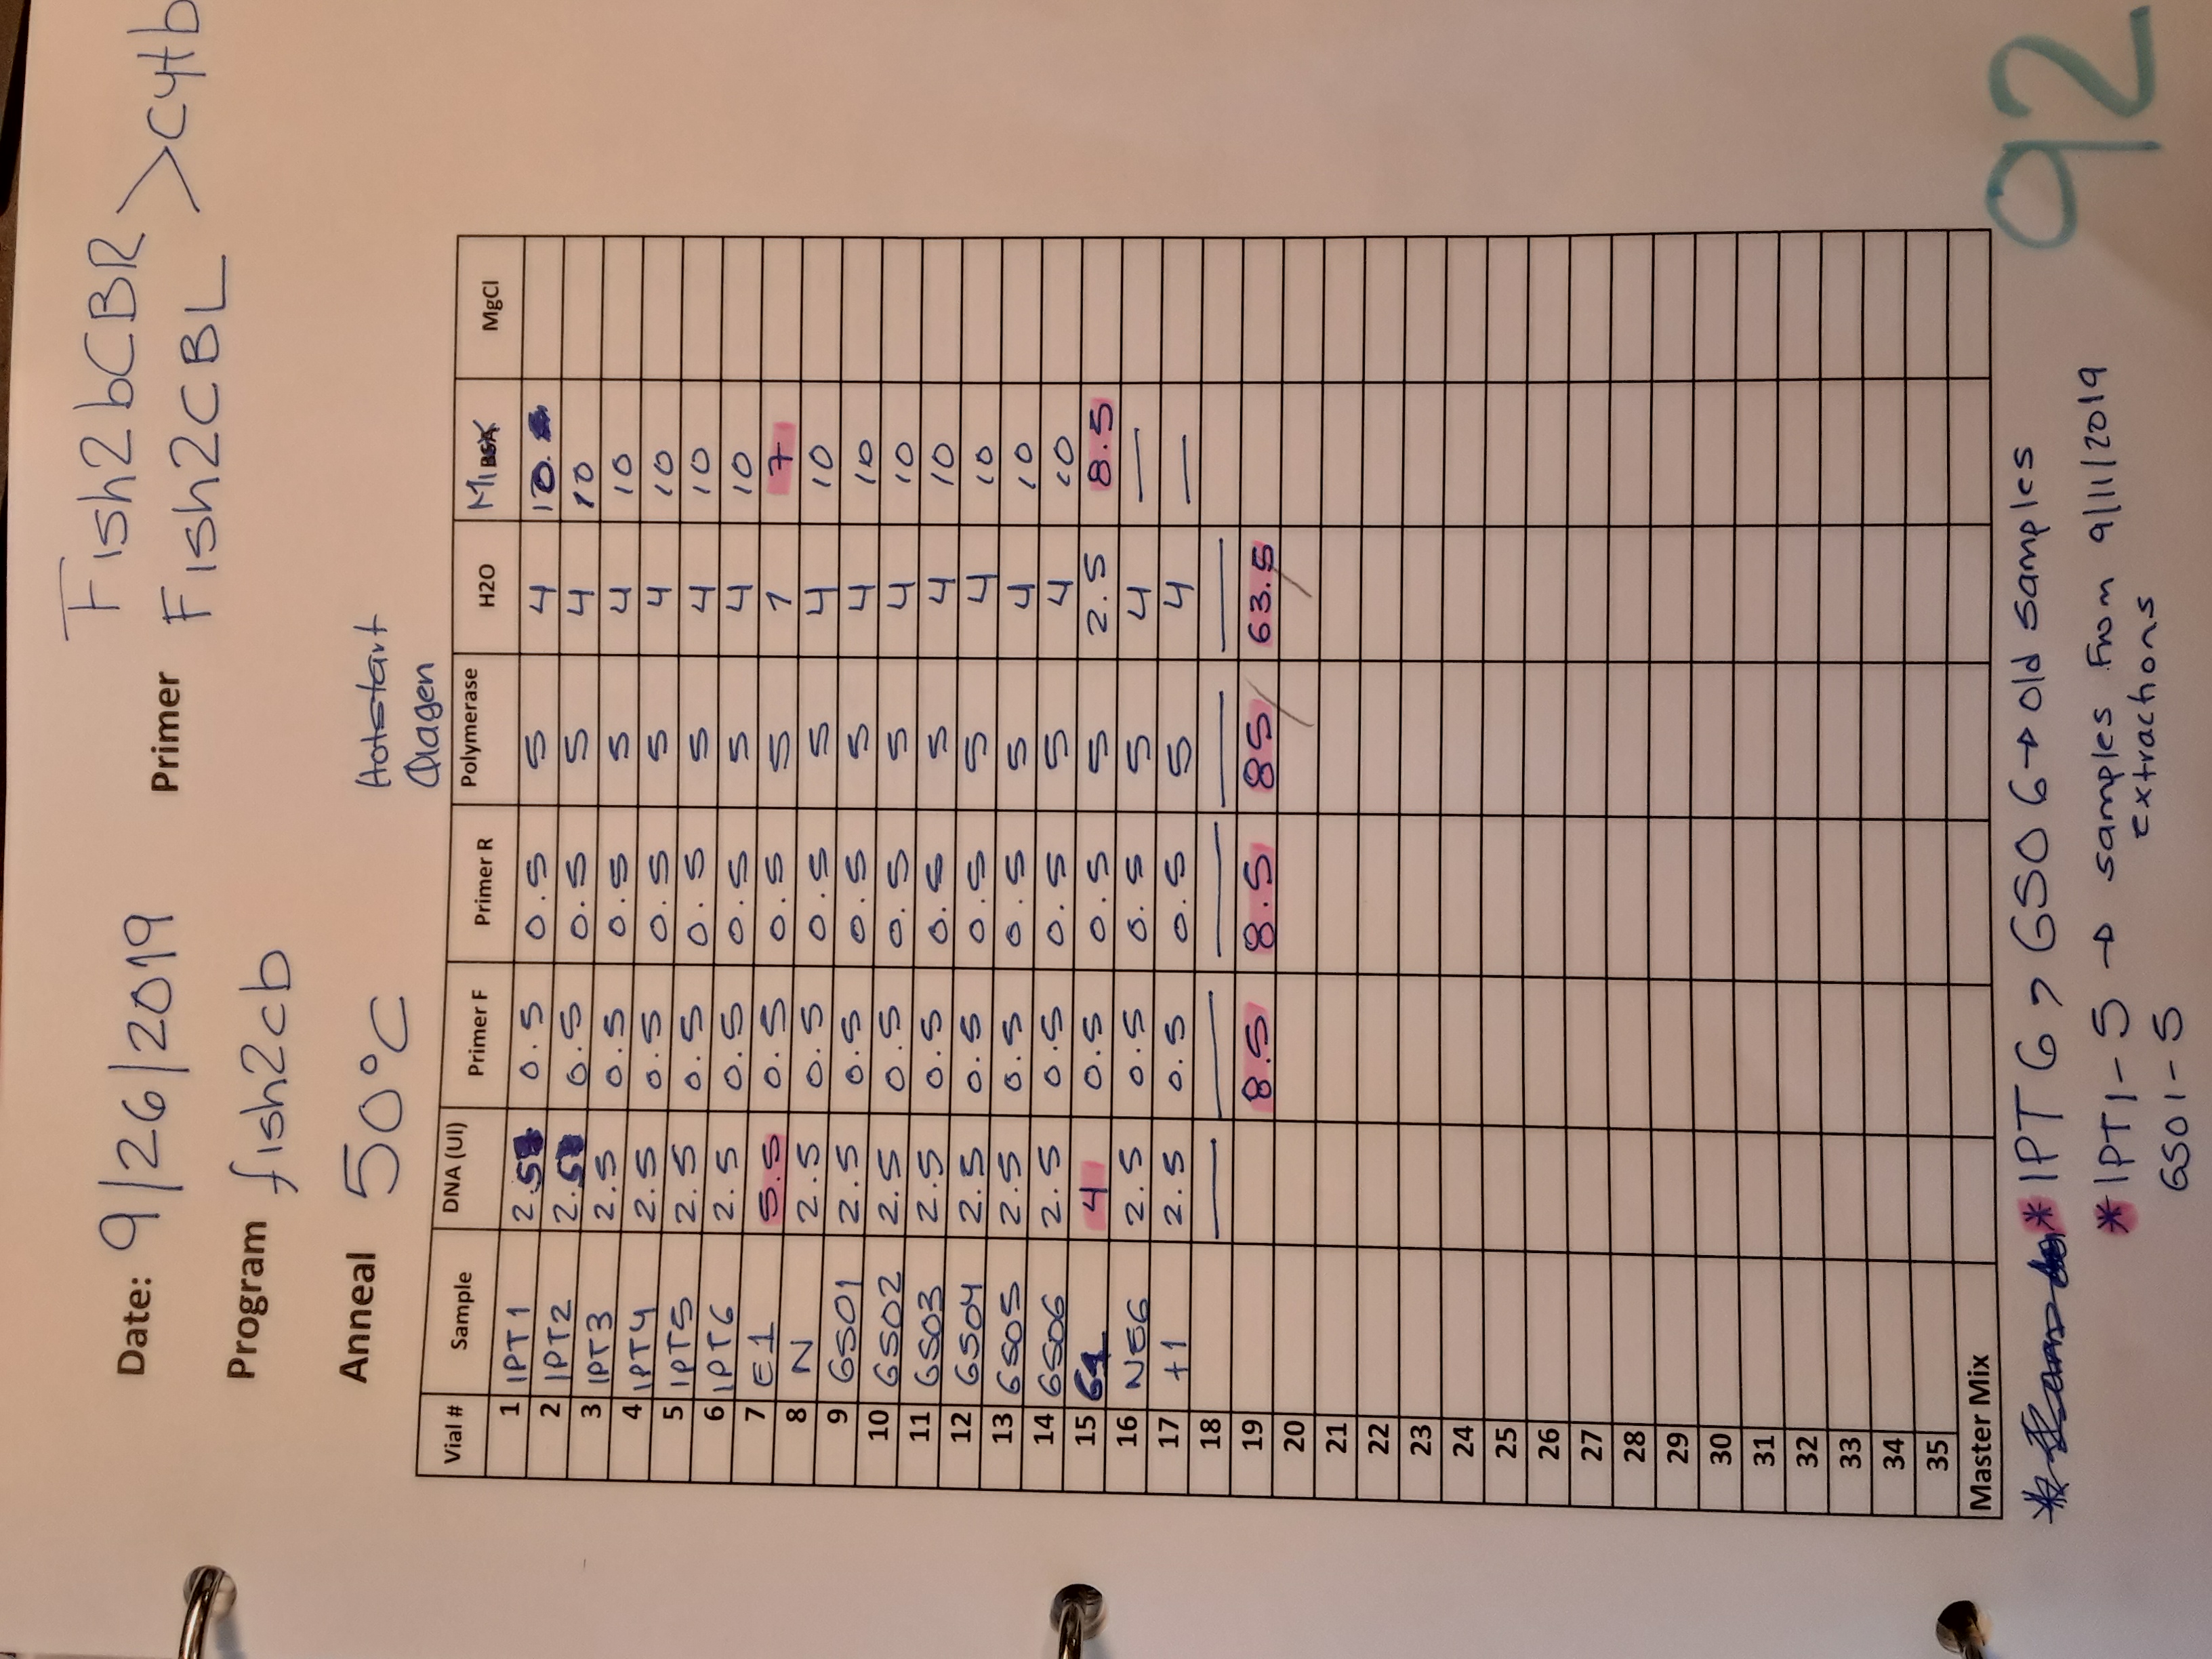 Date: 9/26/2019
Primer Fish2bCBR
Fish2CBL > cytb
Program fish2cb
Anneal 50°C
Hotstart
Qiagen
Vial # Sample DNA (Ul) Primer F Primer R Polymerase H2O Mix BSA MgCl
1 IPT1 2.5 0.5 0.5 5 4 10.
2 IPT2 2.5 0.5 0.5 5 4 10
3 IPT3 2.5 0.5 0.5 5 4 10
4 IPT4 2.5 0.5 0.5 5 4 10
5 IPT5 2.5 0.5 0.5 5 4 10
6 IPT6 2.5 0.5 0.5 5 4 10
7 E1 5.5 0.5 0.5 5 1 7
8 N 2.5 0.5 0.5 5 4 10
9 GSO1 2.5 0.5 0.5 5 4 10
10 GSO2 2.5 0.5 0.5 5 4 10
11 GSO3 2.5 0.5 0.5 5 4 10
12 GSO4 2.5 0.5 0.5 5 4 10
13 GSO5 2.5 0.5 0.5 5 4 10
14 GSO6 2.5 0.5 0.5 5 4 10
15 G1 4 0.5 0.5 5 2.5 8.5
16 NEG 2.5 0.5 0.5 5 4 —
17 +1 2.5 0.5 0.5 5 4 —
18 — — — — —
19 8.5 8.5 85 63.5
20
21
22
23
24
25
26
27
28
29
30
31
32
33
34
35
Master Mix
* IPT 6 , GSO 6 → old samples
* IPT1-5 → samples from 9/11/2019
extractions
GSO1-5
92